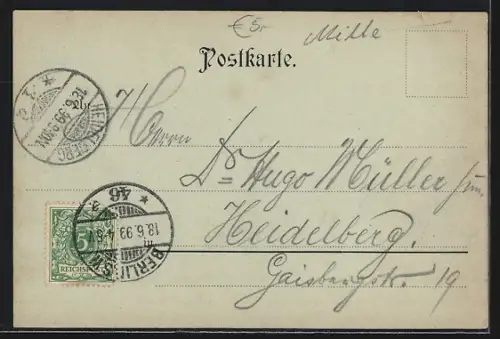 €5,-
Mitte
Postkarte.
An
Herrn
Dr Hugo Müller jun.
Heidelberg.
Gaisbergstr. 19
HEIDELBERG
19.6.99
BERLIN
18.6.99
46
5
REICHSPOST